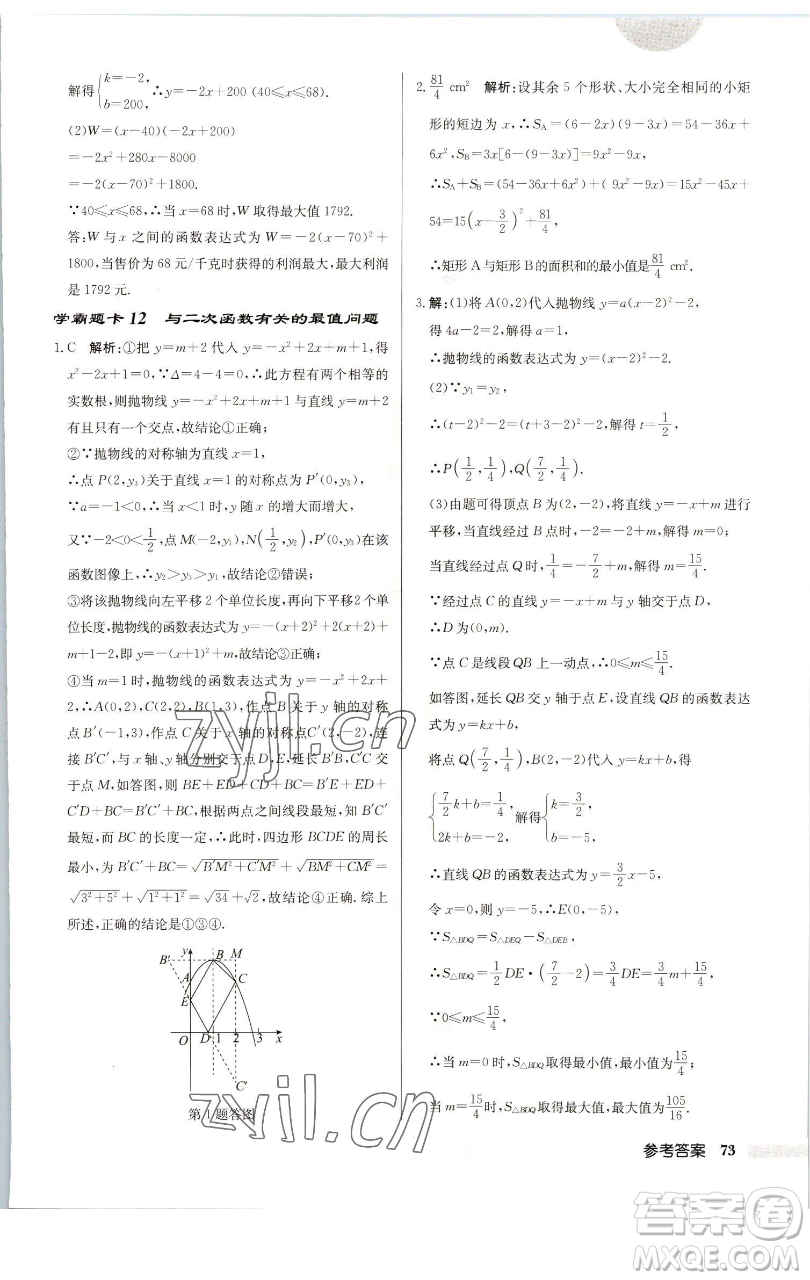 解得{k=-2, b=200, ∴y=-2x+200 (40≤x≤68).
(2)W=(x-40)(-2x+200)
=-2x²+280x-8000
=-2(x-70)²+1800.
∵40≤x≤68,∴当 x=68 时,W 取得最大值 1792.
答:W 与 x 之间的函数表达式为 W=-2(x-70)²+
1800,当售价为 68 元/千克时获得的利润最大,最大利润
是 1792 元.
学霸题卡 12 与二次函数有关的最值问题
1.C 解析:①把 y=m+2 代入 y=-x²+2x+m+1,得
x²-2x+1=0,∵Δ=4-4=0,∴此方程有两个相等的
实数根,则抛物线 y=-x²+2x+m+1 与直线 y=m+2
有且只有一个交点,故结论①正确;
②∵抛物线的对称轴为直线 x=1,
∴点 P(2,y₃)关于直线 x=1 的对称点为 P′(0,y₃).
∵a=-1<0,∴当 x<1 时,y 随 x 的增大而增大,
又∵-2<0<1/2,点 M(-2,y₁),N(1/2,y₂),P′(0,y₃)在该
函数图像上,∴y₂>y₃>y₁,故结论②错误;
③将该抛物线向左平移 2 个单位长度,再向下平移 2 个单
位长度,抛物线的函数表达式为 y=-(x+2)²+2(x+2)+
m+1-2,即 y=-(x+1)²+m,故结论③正确;
④当 m=1 时,抛物线的函数表达式为 y=-x²+2x+
2,∴A(0,2),C(2,2),B(1,3),作点 B 关于 y 轴的对称
点 B′(-1,3),作点 C 关于 x 轴的对称点C′(2,-2),连
接 B′C′,与 x 轴、y 轴分别交于点 D,E,设 B′B,C′C 交
于点 M,如答图,则 BE+ED+CD+BC=B′E+ED+
C′D+BC=B′C′+BC,根据两点之间线段最短,知 B′C′
最短,而 BC 的长度一定,∴此时,四边形 BCDE 的周长
最小,为 B′C′+BC=√(B′M²+C′M²)+√(BM²+CM²)=
√(3²+5²)+√(1²+1²)=√34+√2,故结论④正确.综上
所述,正确的结论是①③④.
y
B′ B M
A C
E
O D 1 2 3 x
C′
第 1 题答图
2. 81/4 cm² 解析:设其余 5 个形状、大小完全相同的小矩
形的短边为 x,∴S_A=(6-2x)(9-3x)=54-36x+
6x²,S_B=3x[6-(9-3x)]=9x²-9x,
∴S_A+S_B=(54-36x+6x²)+( 9x²-9x)=15x²-45x+
54=15(x-3/2)²+81/4,
∴矩形 A 与矩形 B 的面积和的最小值是 81/4 cm².
3.解:(1)将 A(0,2)代入抛物线 y=a(x-2)²-2,
得 4a-2=2,解得 a=1,
∴抛物线的函数表达式为 y=(x-2)²-2.
(2)∵y₁=y₂,
∴(t-2)²-2=(t+3-2)²-2,解得 t=1/2,
∴P(1/2,1/4),Q(7/2,1/4).
(3)由题可得顶点 B 为(2,-2),将直线 y=-x+m 进行
平移,当直线经过 B 点时,-2=-2+m,解得 m=0;
当直线经过点 Q 时,1/4=-7/2+m,解得 m=15/4.
∵经过点 C 的直线 y=-x+m 与 y 轴交于点 D,
∴D 为(0,m).
∵点 C 是线段 QB 上一动点,∴0≤m≤15/4.
如答图,延长 QB 交 y 轴于点 E,设直线 QB 的函数表达
式为 y=kx+b,
将点 Q(7/2,1/4),B(2,-2)代入,得
{7/2k+b=1/4, 2k+b=-2, 解得{k=3/2, b=-5,
∴直线 QB 的函数表达式为 y=3/2x-5,
令 x=0,则 y=-5,∴E(0,-5),
∵S△BDQ=S△DEQ-S△DEB,
∴S△BDQ=1/2DE·(7/2-2)=3/4DE=3/4m+15/4,
∵0≤m≤15/4,
∴当 m=0 时,S△BDQ 取得最小值,最小值为 15/4;
当 m=15/4时,S△BDQ 取得最大值,最大值为 105/16.
参考答案 73
zyjl.cn
zyjl.cn
答案圈
MXQE.COM